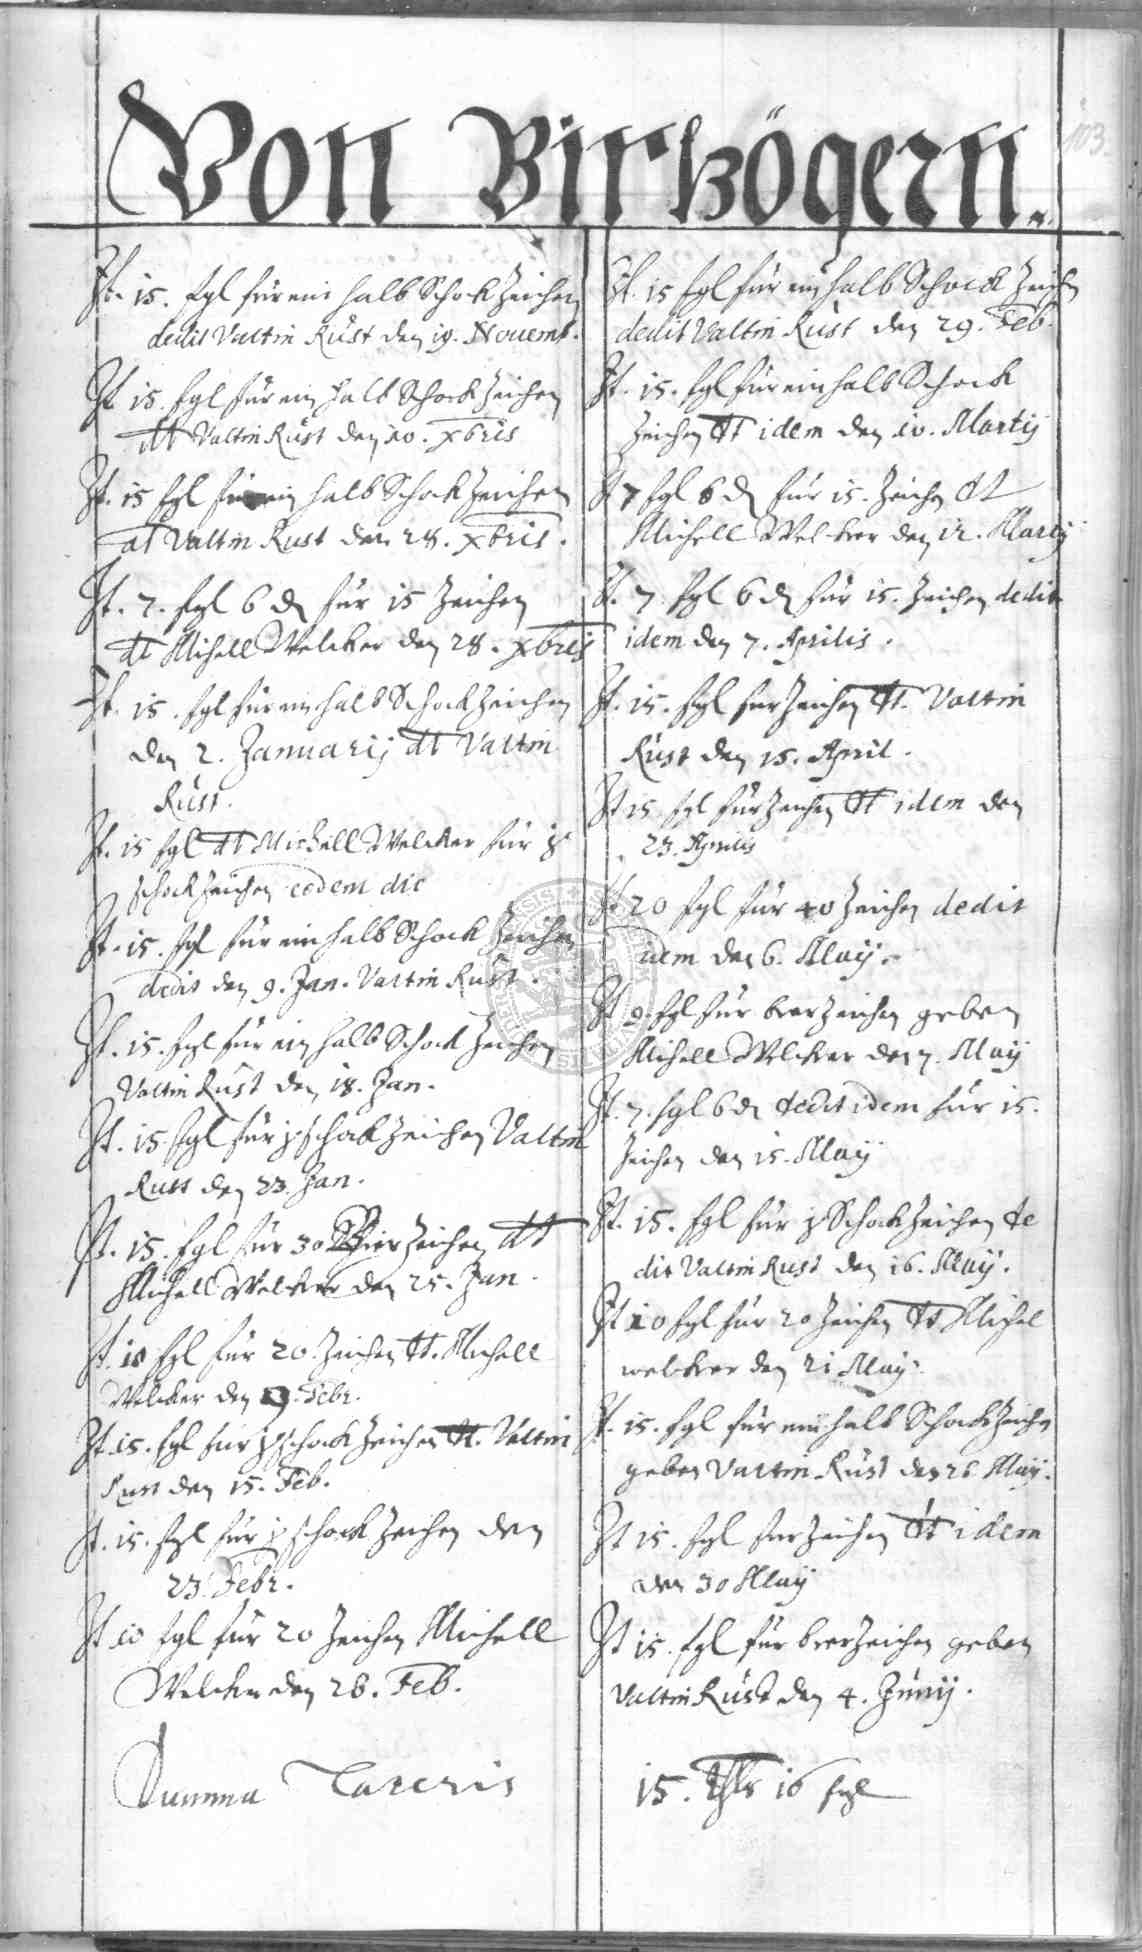 103.
Von Birtzögern.
It. 15. sgl für ein halb Schock Zeichen
dedit Valtin Rust den 19. Nouemb.
It 15. sgl für ein halb Schock Zeichen
dt Valtin Rust den 10. xbris
It. 15 sgl für ein halb Schock Zeichen
dt Valtin Rust den 28. xbris.
It. 7. sgl 6 d für 15 Zeichen
dt Michell Welcker den 28. xbris
It. 15. sgl für ein halb Schock Zeichen
den 2. Januarij dt Valtin
Rust.
It. 15 sgl dt Michell Welcker für
schock Zeichen eodem die
It. 15. sgl für ein halb Schock Zeichen
dedit den 9. Jan. Valtin Rust.
It. 15. sgl für ein halb Schock Zeichen
Valtin Rust den 18. Jan.
It. 15 sgl für schock Zeichen Valtin
Rust den 23. Jan.
It. 15. sgl für 30 Bierzeichen dt
Michell Welcker den 25. Jan.
It. 10 sgl für 20. Zeichen dt. Michell
Welcker den 9. Febr.
It. 15. sgl für schock Zeichen dt. Valtin
Rust den 15. Feb.
It. 15. sgl für schock Zeichen den
23 Febr.
It 10 sgl für 20 Zeichen Michell
Welcker den 28. Feb.
Summa Lateris
It. 15 sgl für ein halb Schock Zeichen
dedit Valtin Rust den 29. Feb.
It. 15. sgl für ein halb Schock
Zeichen dt idem den 10. Martij
It 7 sgl 6 d für 15. Zeichen dt
Michell Welcker den 12. Martij
It. 7. sgl 6 d für 15. Zeichen dedit
idem den 7. Aprilis.
It. 15. sgl für Zeichen dt. Valtin
Rust den 15. April.
It 15 sgl für Zeichen dt idem den
23. Aprilis
It 20 sgl für 40 Zeichen dedit
idem den 6. Maij.
It 9. sgl für birzeichen geben
Michell Welcker den 7. Maij
It. 7. sgl 6 d dedit idem für 15.
Zeichen den 15. Maij
It. 15. sgl für Schock Zeichen de
dit Valtin Rust den 16. Maij.
It 10 sgl für 20 Zeichen dt Michel
Welcker den 21 Maij.
It. 15. sgl für ein halb Schock Zeichen
geben Valtin Rust den 26. Maij.
It 15. sgl für Zeichen dt idem
den 30 Maij
It 15. sgl für birzeichen geben
Valtin Rust den 4. Junij.
15. Thlr 16 sgl